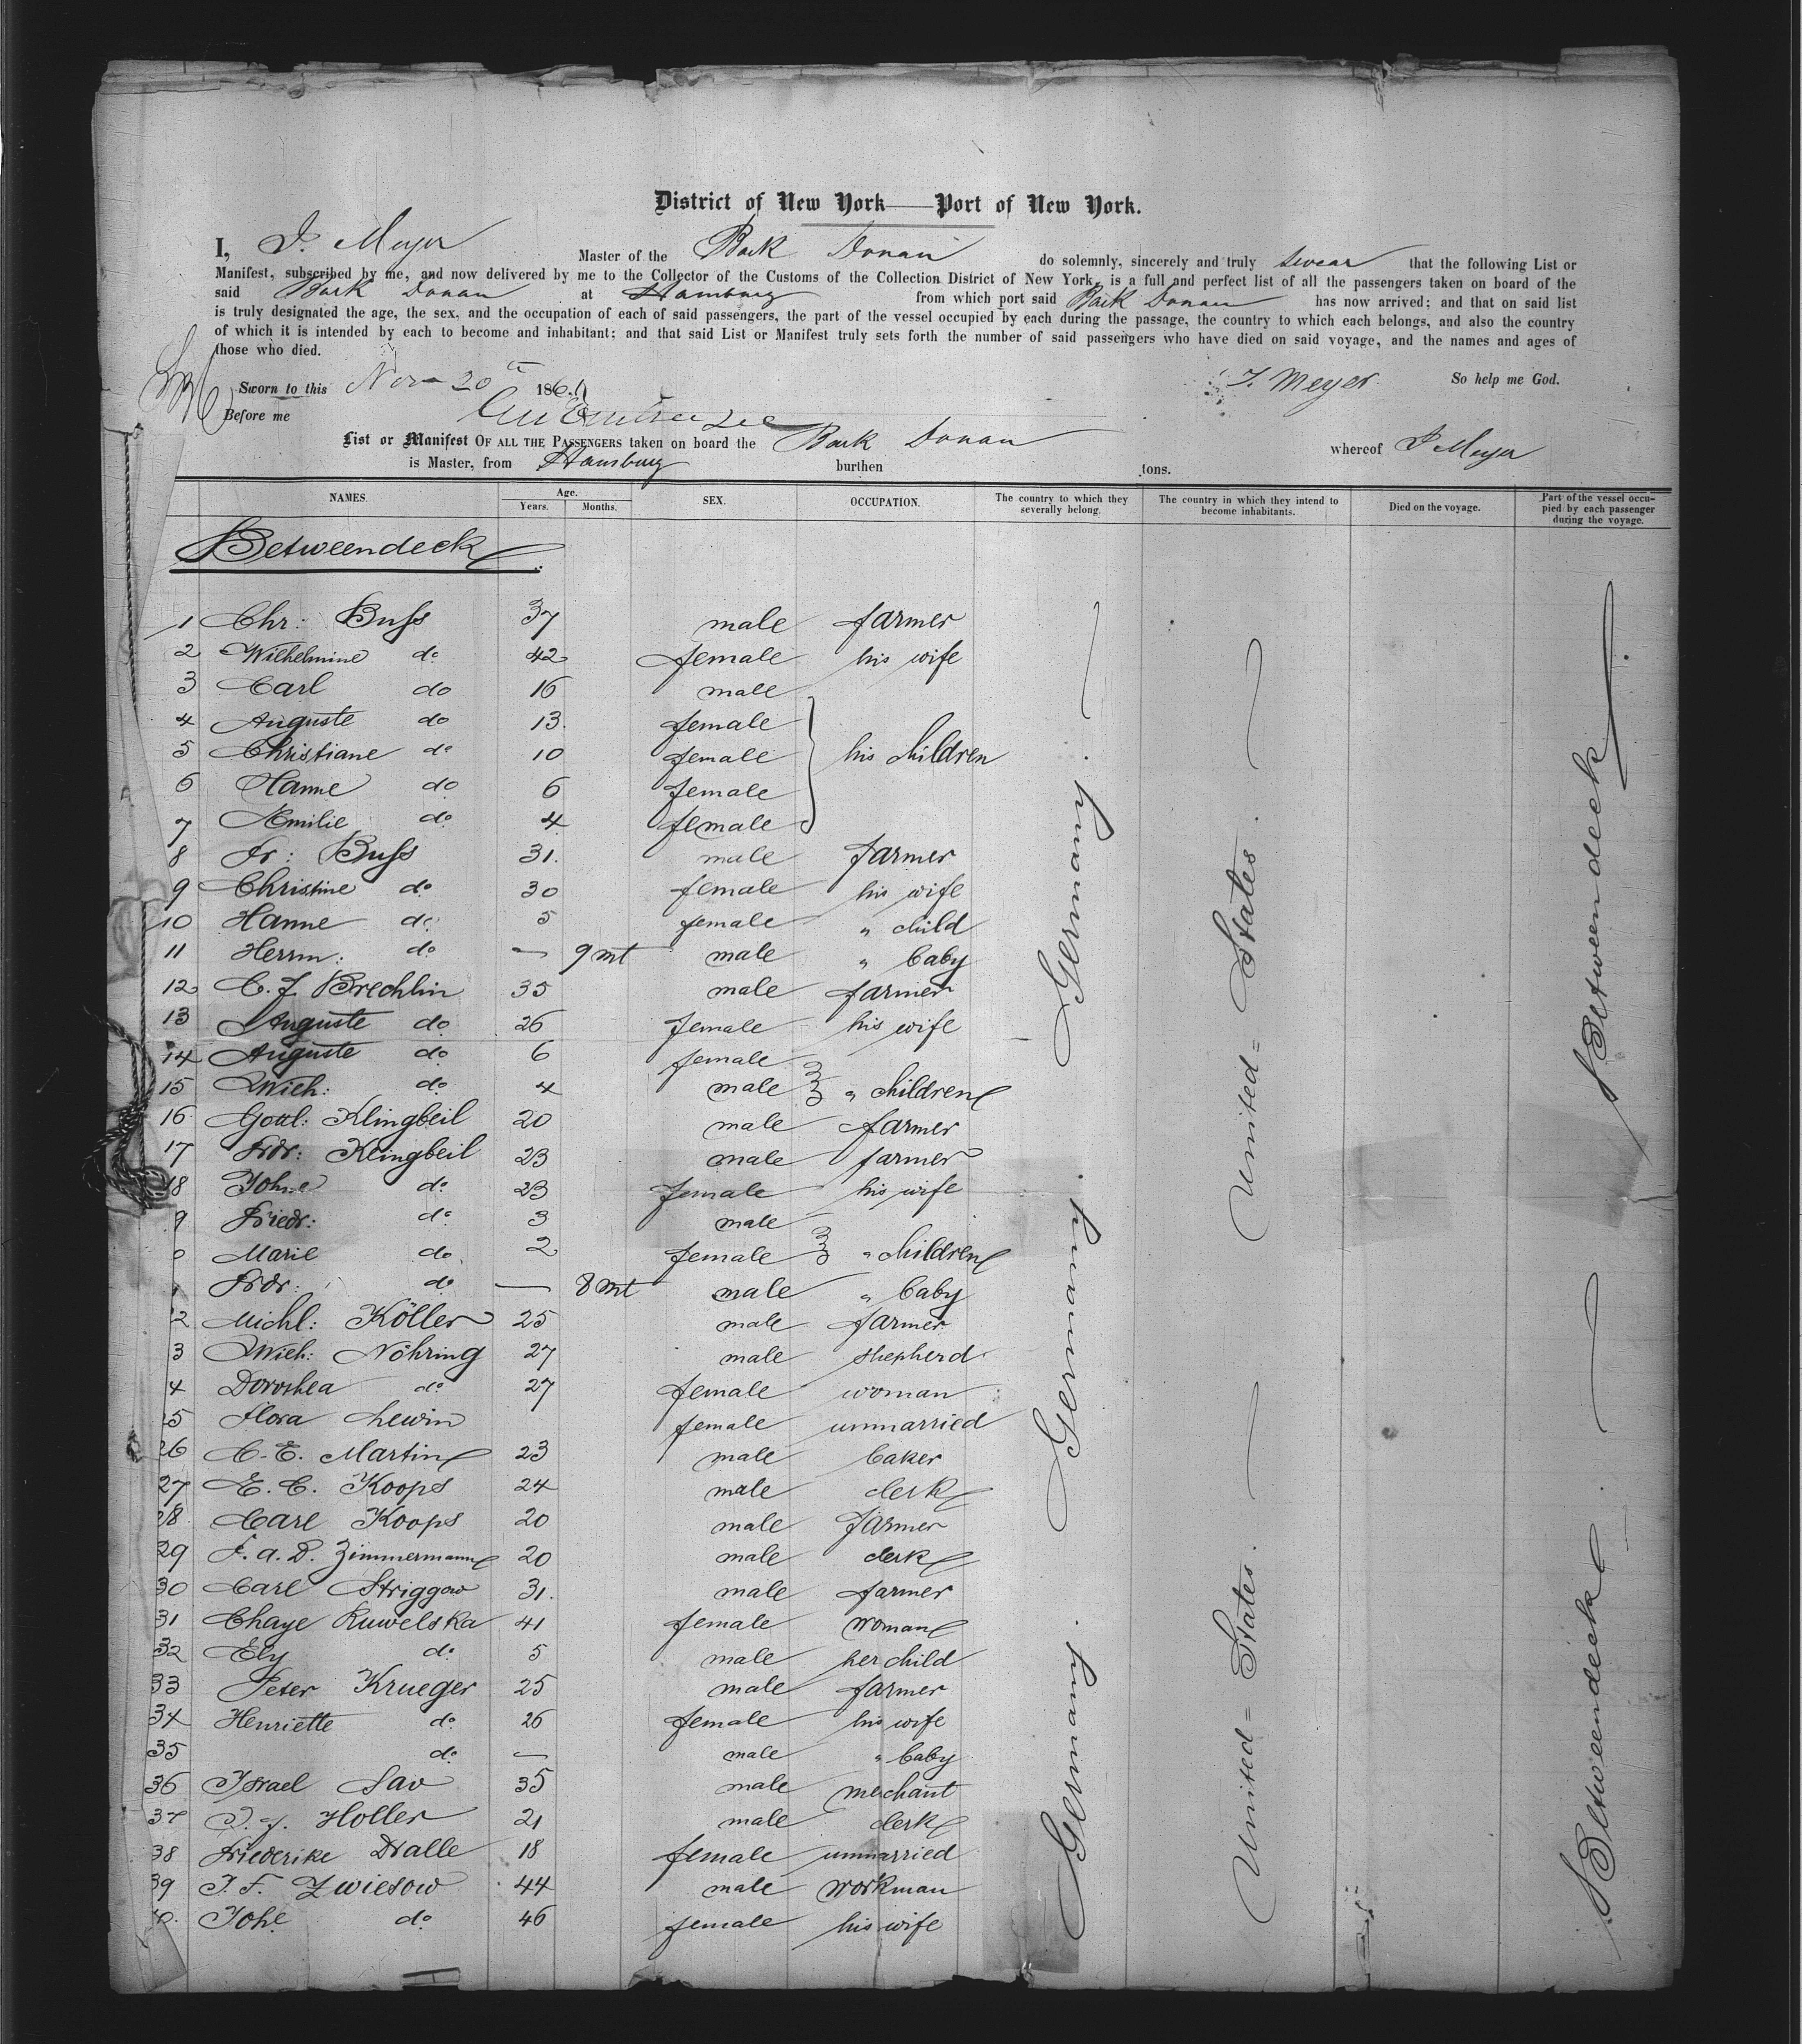 District of New York — Port of New York.
I, J. Meyer Master of the Bark Donau do solemnly, sincerely and truly swear that the following List or
Manifest, subscribed by me, and now delivered by me to the Collector of the Customs of the Collection District of New York, is a full and perfect list of all the passengers taken on board of the
said Bark Donau at Hamburg from which port said Bark Donau has now arrived; and that on said list
is truly designated the age, the sex, and the occupation of each of said passengers, the part of the vessel occupied by each during the passage, the country to which each belongs, and also the country
of which it is intended by each to become and inhabitant; and that said List or Manifest truly sets forth the number of said passengers who have died on said voyage, and the names and ages of
those who died.
Sworn to this Nov 20th 186 J. Meyer So help me God.
Before me
List or Manifest OF ALL THE PASSENGERS taken on board the Bark Donau whereof J Meyer
is Master, from Hamburg burthen tons.
NAMES. Age. Years. Months. SEX. OCCUPATION. The country to which they severally belong. The country in which they intend to become inhabitants. Died on the voyage. Part of the vessel occupied by each passenger during the voyage.
Betweendeck
1 Chr: Buss 37 male farmer
2 Wilhelmine do 42 female his wife
3 Carl do 16 male
4 Auguste do 13. female
5 Christiane do 10 female his children
6 Hanne do 6 female
7 Emilie do 4 female
8 Fr: Buss 31. male farmer
9 Christine do 30 female his wife
10 Hanne do 5 female " child
11 Herrm: do — 9 mt male " baby
12 C. F. Brechlin 35 male farmer
13 Auguste do 26 female his wife
14 Auguste do 6 female
15 Wilh: do 4 male " children
16 Gottl: Klingbeil 20 male farmer
17 Frdr: Klingbeil 23 male farmer
18 Johne do 23 female his wife
9 Friedr: do 3 male
0 Marie do 2 female " children
1 Frdr: do — 8 mt male " baby
2 Michl: Köller 25 male farmer
3 Wilh: Nöhring 27 male shepherd
4 Dorothea do 27 female woman
25 Flora Lewin female unmarried
26 C. E. Martin 23 male baker
27 E. C. Koops 24 male clerk
28 Carl Koops 20 male farmer
29 F. A. D. Zimmermann 20 male clerk
30 Carl Striggow 31. male farmer
31 Chaye Ruwelska 41 female woman
32 Ely do 5 male her child
33 Peter Krueger 25 male farmer
34 Henriette do 26 female his wife
35 do — male " baby
36 Israel Sav 35 male mechant
37 J. J. Holler 21 male clerk
38 Friederike Dralle 18 female unmarried
39 J. F. Zwiesow 44 male workman
40. Johe do 46 female his wife
Germany. Germany. Germany.
United = States. United = States.
Betweendeck Betweendeck